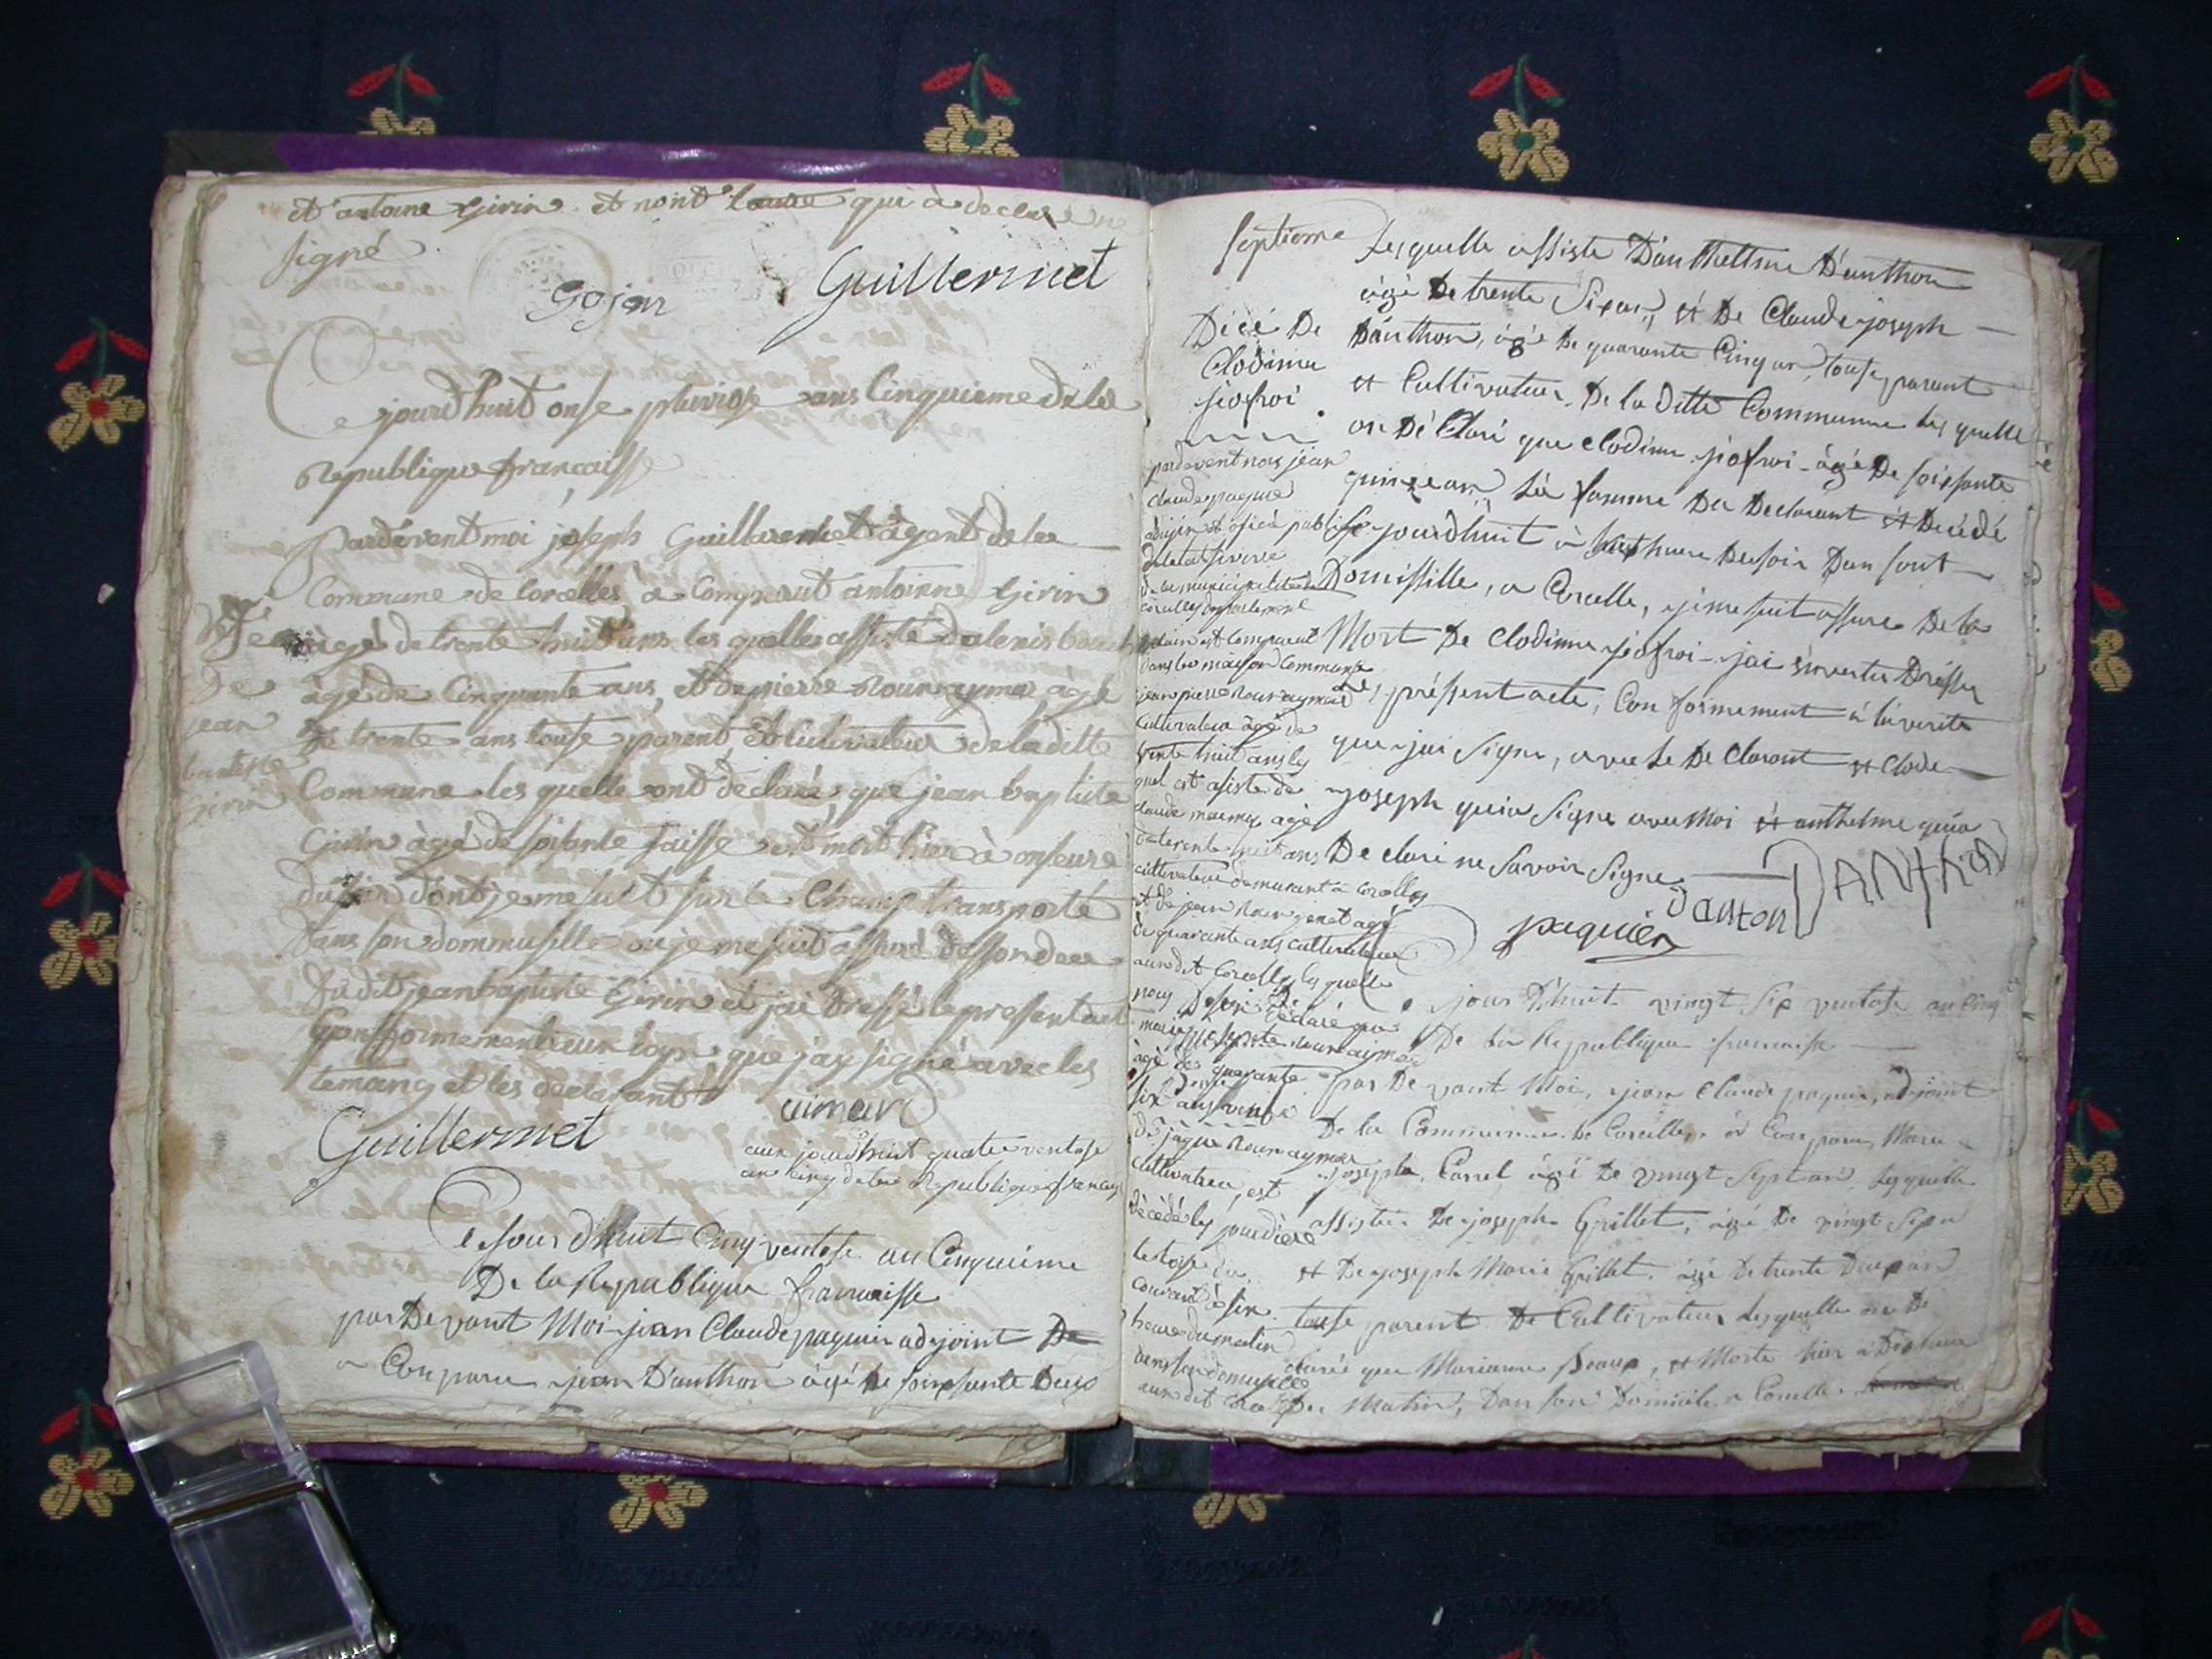 et antoine Girin et nont l'autre qui à declare ne
signé
Gojon
Guillermet
Ce jourd'huit onse pluviose ans Cinquieme dela
Republique francaisse
Pardevent moi joseph Guillermet agent dela
Commune de Corcelles à Comparut antoinne Girin
agé de trente huit ans les quelles assisté d'alexis
âgé de Cinquante ans et de pierre Nouraymar âgé
de trente ans touse parent, et Cultivateur de la ditte
Commune les quelle ont déclaré que jean baptiste
Girin âgé de soisante saisse est mort hier à onseure
du soir dont je me suit sur le Champ transporté
dans son dommusille ou je me suit assuré
dudit jean baptiste Girin et jai dressé le present act
Conformement aux loys que j'ay signé avec les
temoing et les declarant
De
jean
baptiste
Girin
Guillermet
aimard
aux jourdhuit quatre ventose
an cinq dela Republique francays
Ce jour d'huit Cinq ventose an Cinquieme
De la Republique francaisse
par Devant Moi jean Claude paquier adjoint De
a Conparu jean D'anthon âgé de soixsante Deux
septieme
Lesquelle assiste D'anthellme D'anthon
âgé De trente Six an, et De Claude joseph
D'anthon, âgé De quarante Cinq an, touse parant
et Cultivateur De la ditte Commune les quelle
on Dé Claré que Clodinne jiofroi âgé De soissante
quinse an, la famme Du Declarant et Décédé
ce jourd'huit à huit hure Du soir Dan sont
Domissille, a Corcelle, je me suit assure De la
Mort De Clodinne jiofroi jai Dresser
présent acte, Conformement à la verite
que jai Signe, avec Le De Clarant et Clode
joseph qui a Signe avec Moi et anthelme qui a
De clari ne Savoir Signe
Danton DANTHON
paquier
Décé De
Clodinne
jiofroi
pardevent nous jean
claude paquié
adjoin et oficié public
de la municipalité de
corcelles departement
de lain est comparut
dans la maison commune
jean pierre nouraymard
cultivateur âgé de
trente huit ans les
quel est asisté de
claude âgé
de trente huit ans
cultivateur demurant à corcelles
et de jean âgé
de quarante ans cultivateur
audit corcelles les quelle
nous declaré que
marie josepte nouraymar
âgé de quarante
six ans veuve
de jaque nouraymar
cultivateur, est
décédé les jourdiere
courant à six
heure du matin
dans son demusille
audit
jour D'huit vingt Six ventose an Cinq
De La Republique francaise
par De vant Moi, jean Claude paquier, adjoint
De la Commune De Corcelles à Conparu, Marie
joseph, Carrel âgé De vingt Sept an Lesquelle
assister De joseph Grillet, âgé De vingt Sip a
et De joseph Marie Grillet, âgé De trente Deux an
touse parent De Cultivateur Lesquelle on De
claré que Marianne Beaux, et Morte hier a Dis heure
Du Matin, Dan Son Domicile a Corcelle